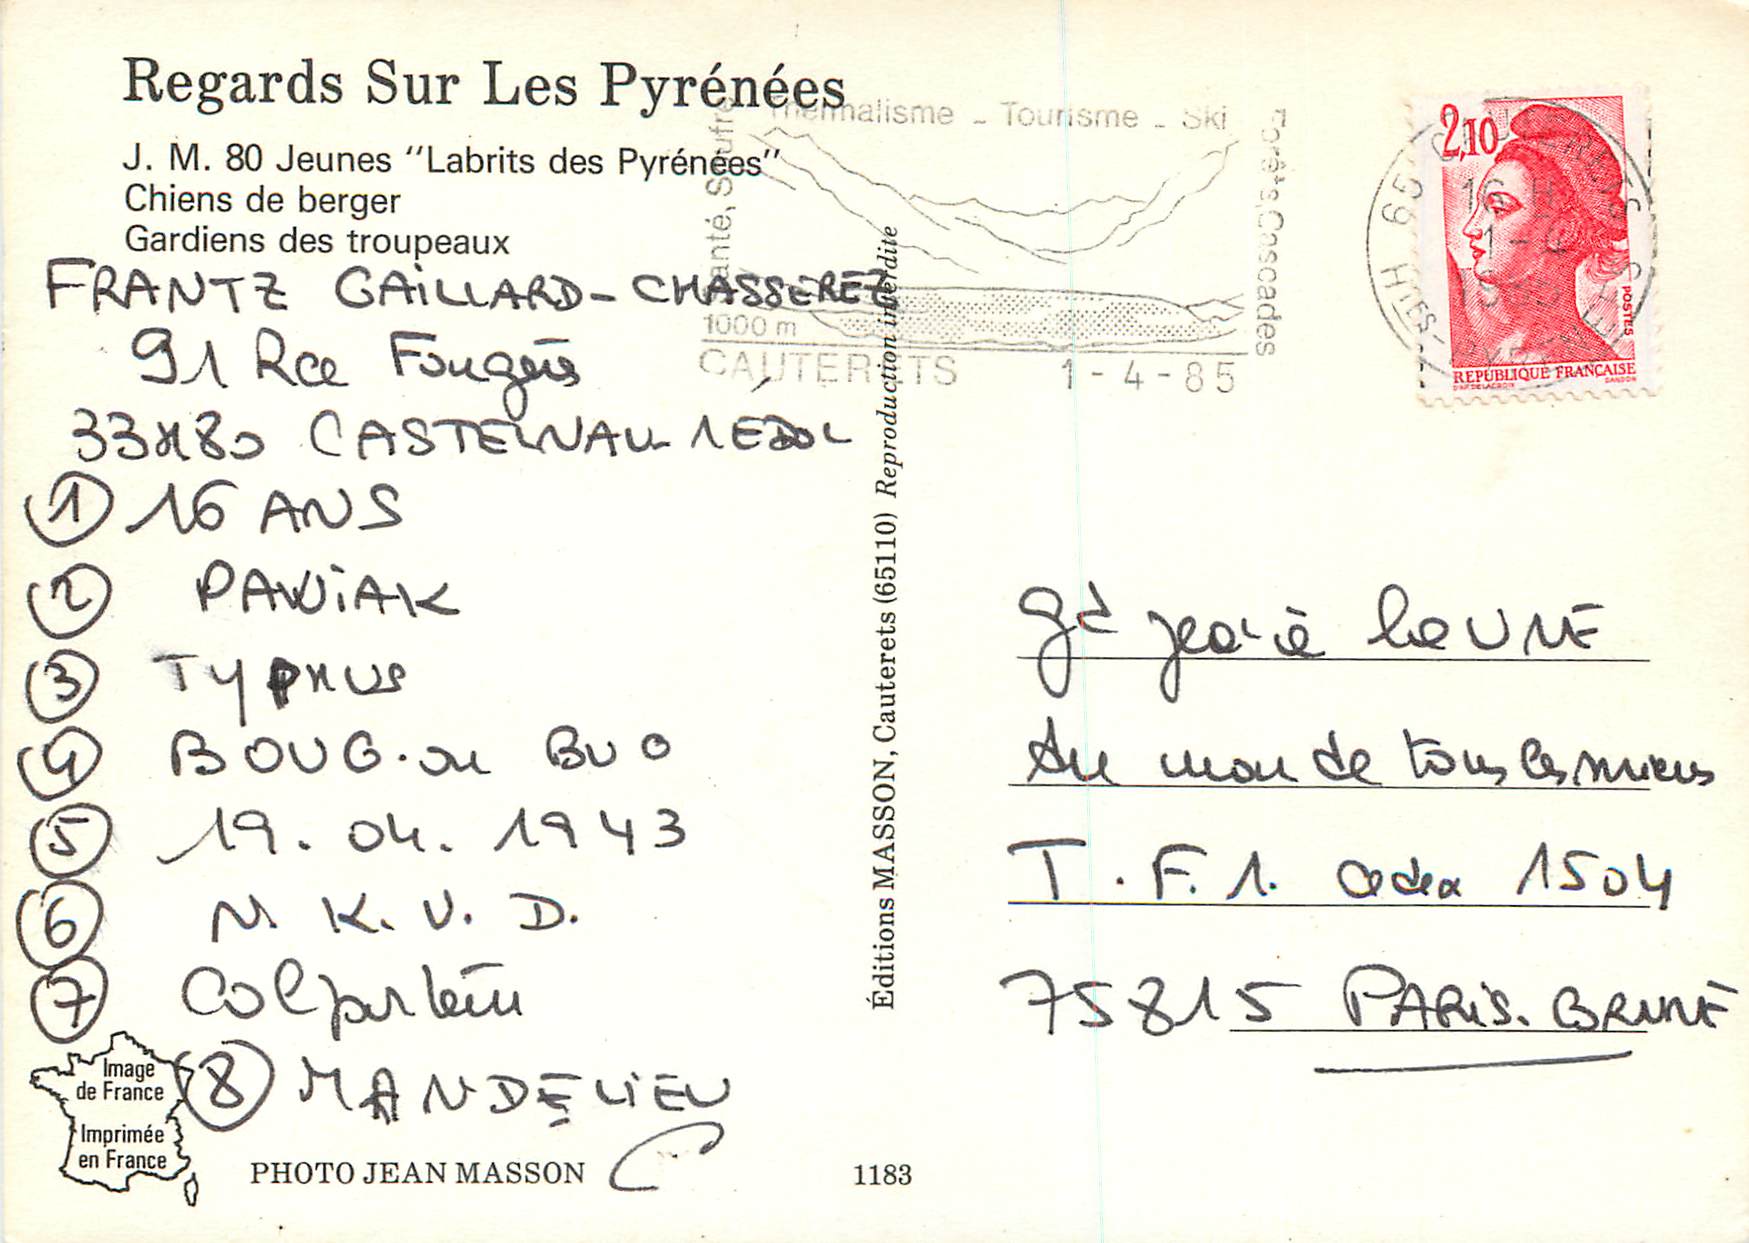 Regards Sur Les Pyrénées
J. M. 80 Jeunes "Labrits des Pyrénées"
Chiens de berger
Gardiens des troupeaux
FRANTZ GAILLARD-CHASSEREZ
91 Rce Fougères
CASTELNAU
① 16 ANS
② PAWIAK
③ TYPHUS
④ BOUG. ou BUO
⑤ 19. 04. 1943
⑥ N. K. V. D.
⑦
⑧ MANDELIEU
Image
de France
Imprimée
en France
PHOTO JEAN MASSON
1183
Éditions MASSON, Cauterets (65110) Reproduction interdite
Thermalisme - Tourisme - Ski
Santé, Soufre
Forêts, Cascades
1000 m
CAUTERETS 1-4-85
65 CAUTERETS
16 H
1-4
HTES-PYRENEES
2,10
POSTES
REPUBLIQUE FRANÇAISE
D'AP. DELACROIX
GANDON
Gd jeu à la UNE
Au nom de tous les miens
T. F. 1. cedex 1504
75815 PARIS. BRUNE